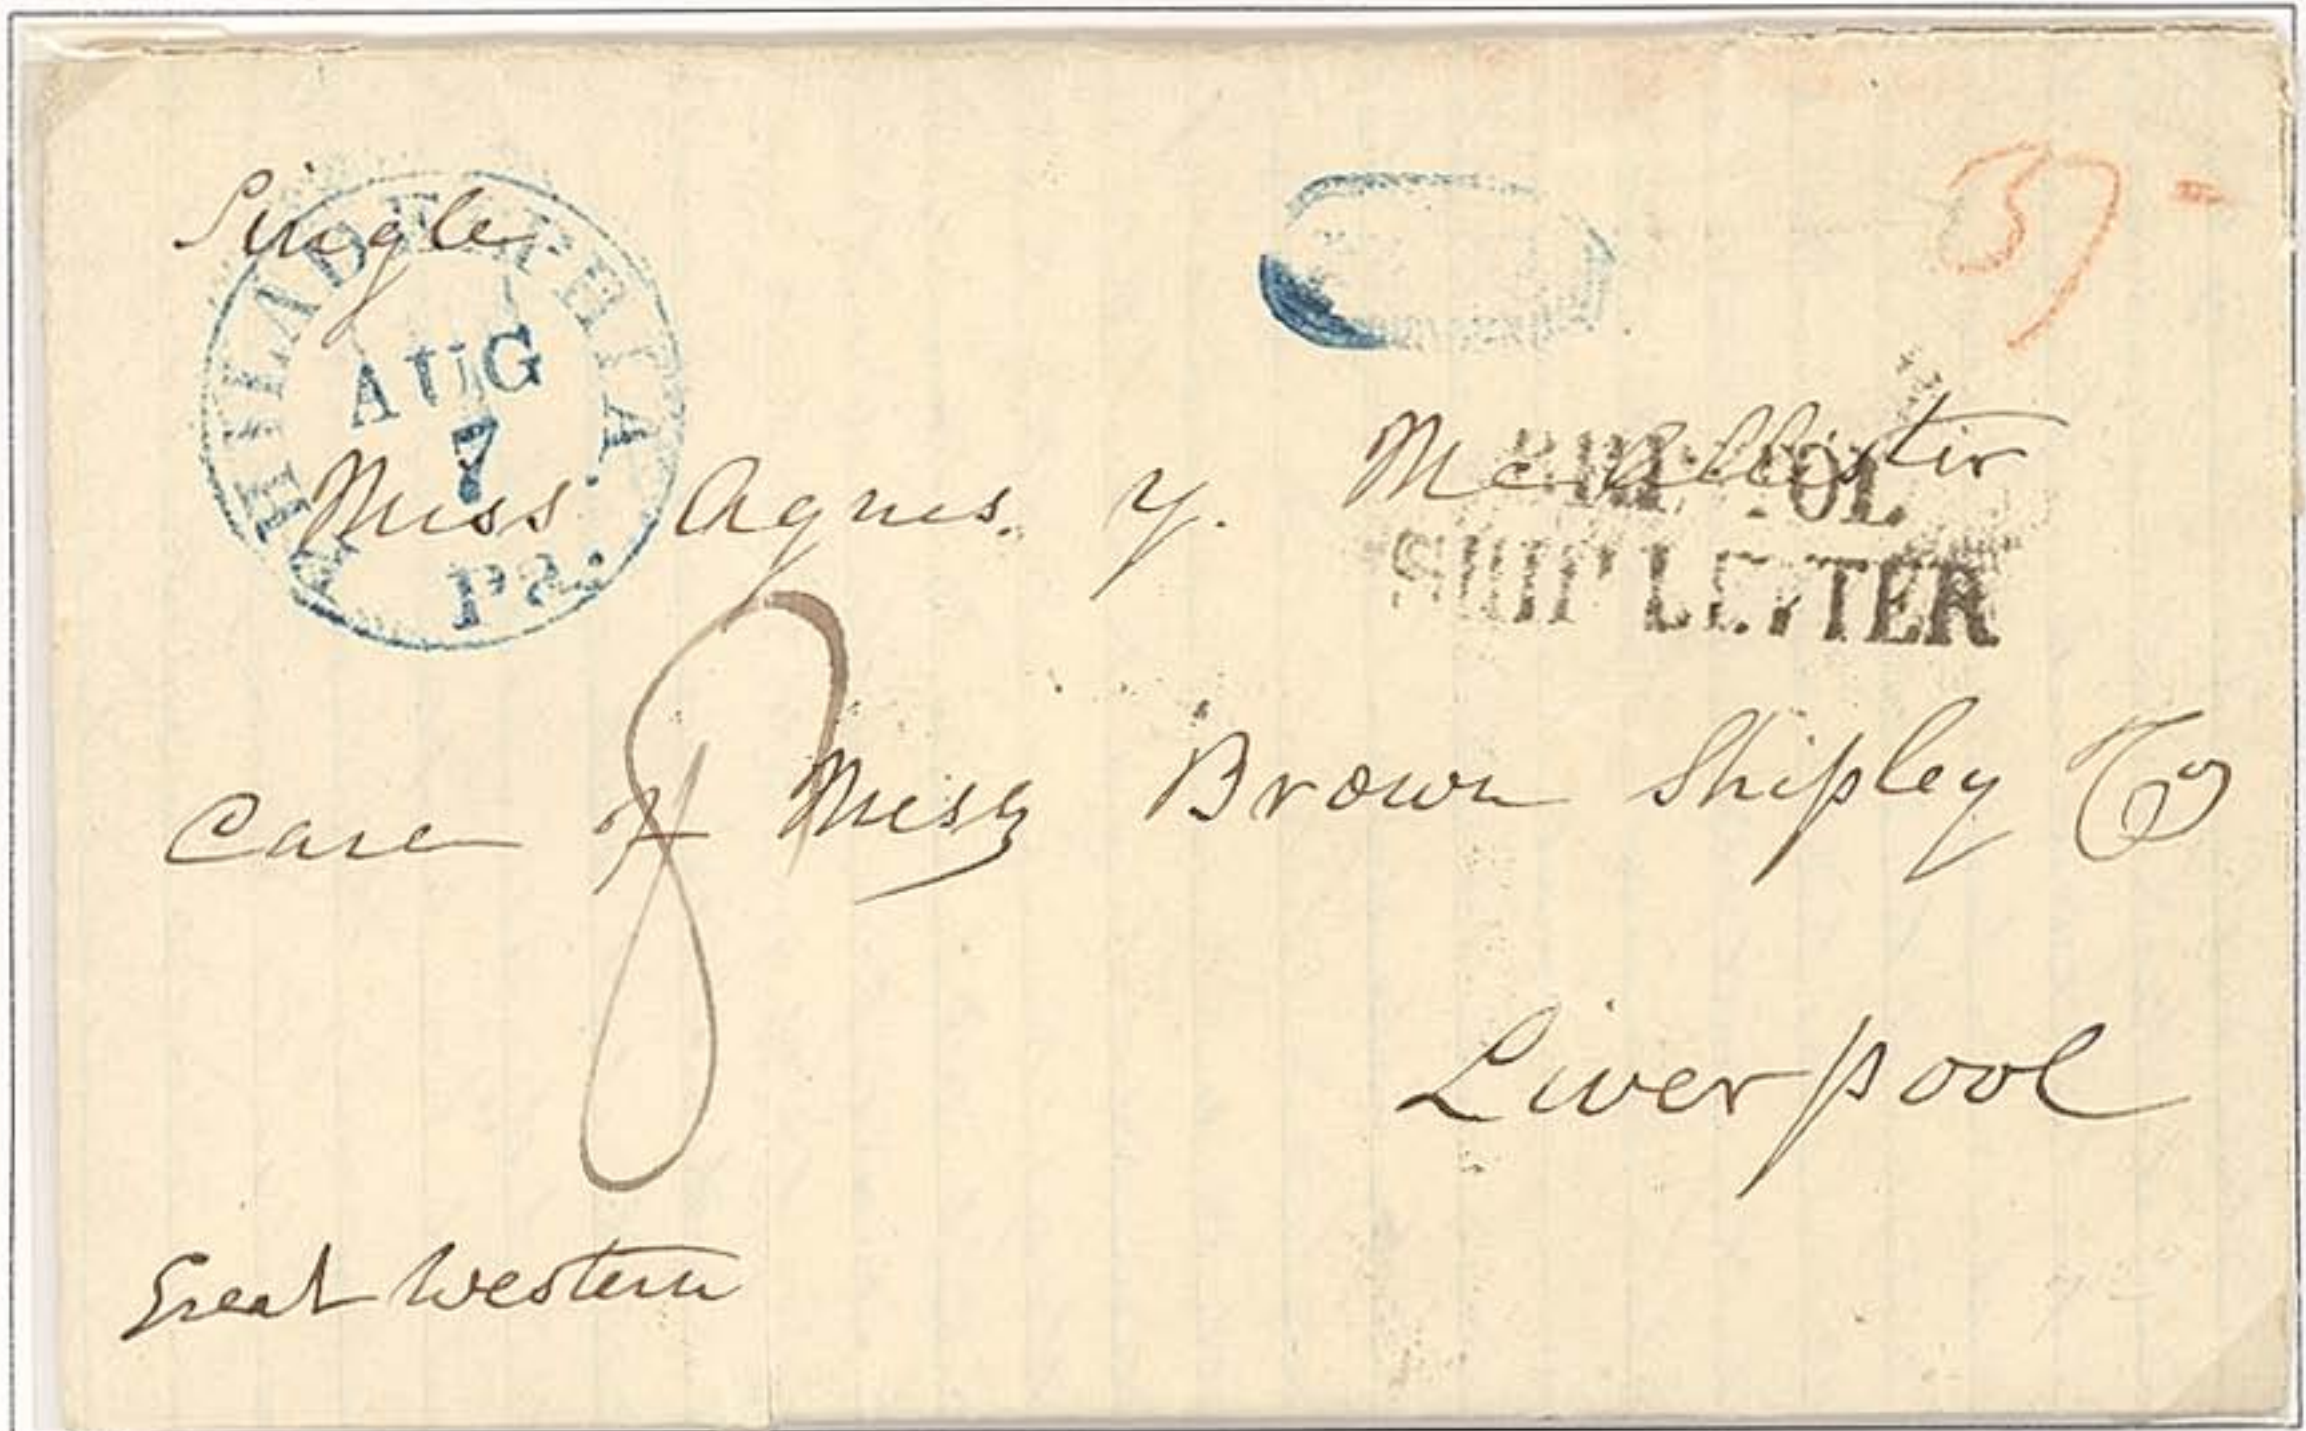 Single
PHILADELPHIA.
AUG
7
Pa.
37
Miss Agnes. Y. McAllister
BRISTOL
SHIP LETTER
8
Care of Mess Brown Shipley Co
Liverpool
Great Western